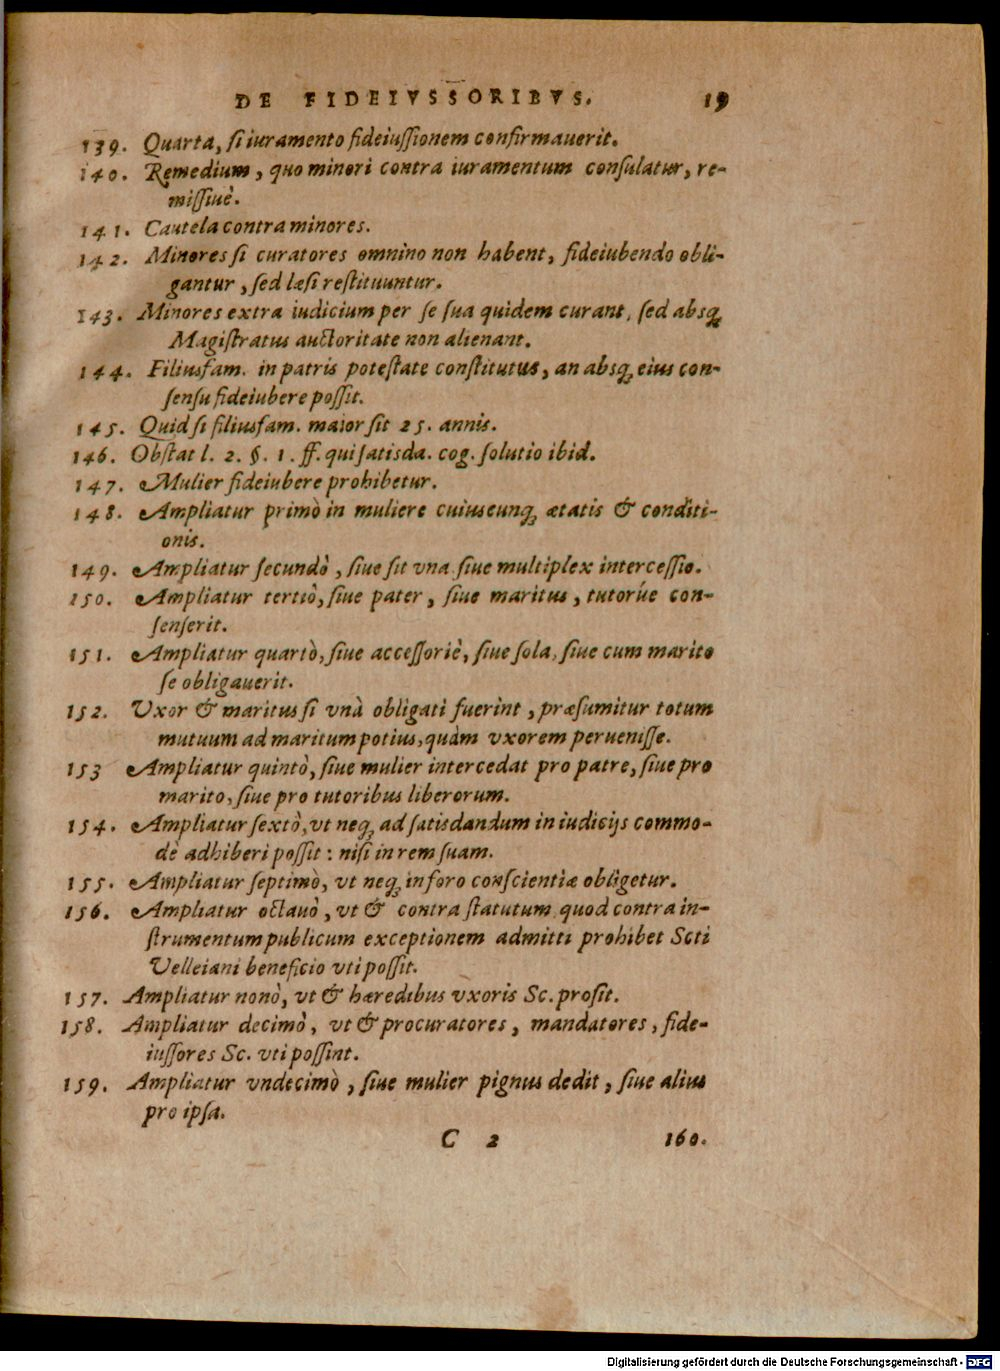 DE FIDEIVSSORIBVS. 19
139. Quarta, ſi iuramento fideiuſſionem confirmauerit.
140. Remedium, quo minori contra iuramentum conſulatur, re-
miſſiuè.
141. Cautela contra minores.
142. Minores ſi curatores omnino non habent, fideiubendo obli-
gantur, ſed læſi reſtituuntur.
143. Minores extra iudicium per ſe ſua quidem curant, ſed absq́
Magiſtratus auctoritate non alienant.
144. Filiusfam. in patris poteſtate conſtitutus, an absq́ eius con-
ſenſu fideiubere poſſit.
145. Quid ſi filiusfam. maior ſit 25. annis.
146. Obſtat l. 2. §. 1. ff. qui ſatisda. cog. ſolutio ibid.
147. Mulier fideiubere prohibetur.
148. Ampliatur primò in muliere cuiuscunq́ ætatis & conditi-
onis.
149. Ampliatur ſecundò, ſiue ſit vna ſiue multiplex interceſſio.
150. Ampliatur tertiò, ſiue pater, ſiue maritus, tutorúe con-
ſenſerit.
151. Ampliatur quartò, ſiue acceſſoriè, ſiue ſola, ſiue cum marito
ſe obligauerit.
152. Vxor & maritus ſi vnà obligati fuerint, præſumitur totum
mutuum ad maritum potius, quàm vxorem perueniſſe.
153 Ampliatur quintò, ſiue mulier intercedat pro patre, ſiue pro
marito, ſiue pro tutoribus liberorum.
154. Ampliatur ſextò, vt neq́ ad ſatisdandum in iudicijs commo-
dè adhiberi poſſit: niſi in rem ſuam.
155. Ampliatur ſeptimò, vt neq́ in foro conſcientiæ obligetur.
156. Ampliatur octauò, vt & contra ſtatutum quod contra in-
ſtrumentum publicum exceptionem admitti prohibet Scti
Velleiani beneficio vti poſſit.
157. Ampliatur nonò, vt & hæredibus vxoris Sc. proſit.
158. Ampliatur decimò, vt & procuratores, mandatores, fide-
iuſſores Sc. vti poſſint.
159. Ampliatur vndecimò, ſiue mulier pignus dedit, ſiue alius
pro ipſa.
C 2 160.
Digitalisierung gefördert durch die Deutsche Forschungsgemeinschaft - DFG